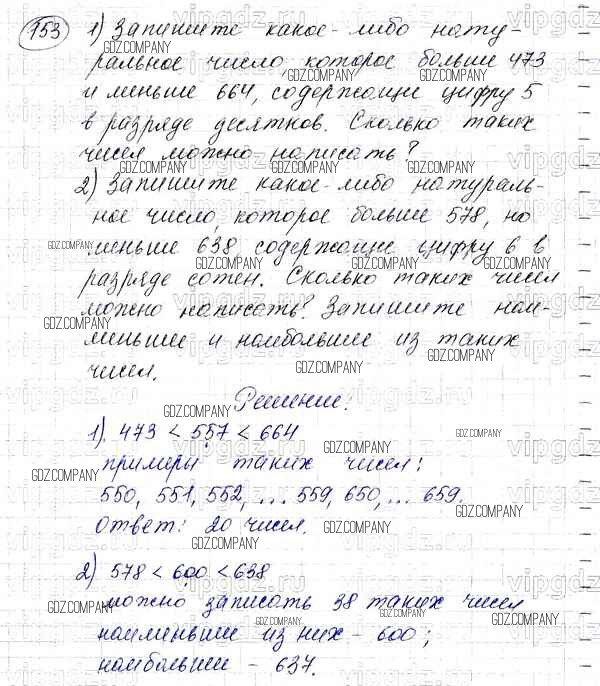 153 1) Запишите какое-либо нату-
ральное число которое больше 473
и меньше 664, содержащие цифру 5
в разряде десятков. Сколько таких
чисел можно написать?
2) Запишите какое-либо натураль-
ное число, которое больше 578, но
меньше 638 содержащие цифру 6 в
разряде сотен. Сколько таких чисел
можно написать? Запишите наи-
меньшие и наибольшие из таких
чисел.
Решение.
1) 473 < 557 < 664
примеры таких чисел:
550, 551, 552, ... 559, 650, ... 659.
Ответ: 20 чисел.
2) 578 < 600 < 638
можно записать 38 таких чисел
наименьшие из них - 600;
наибольшие - 637.